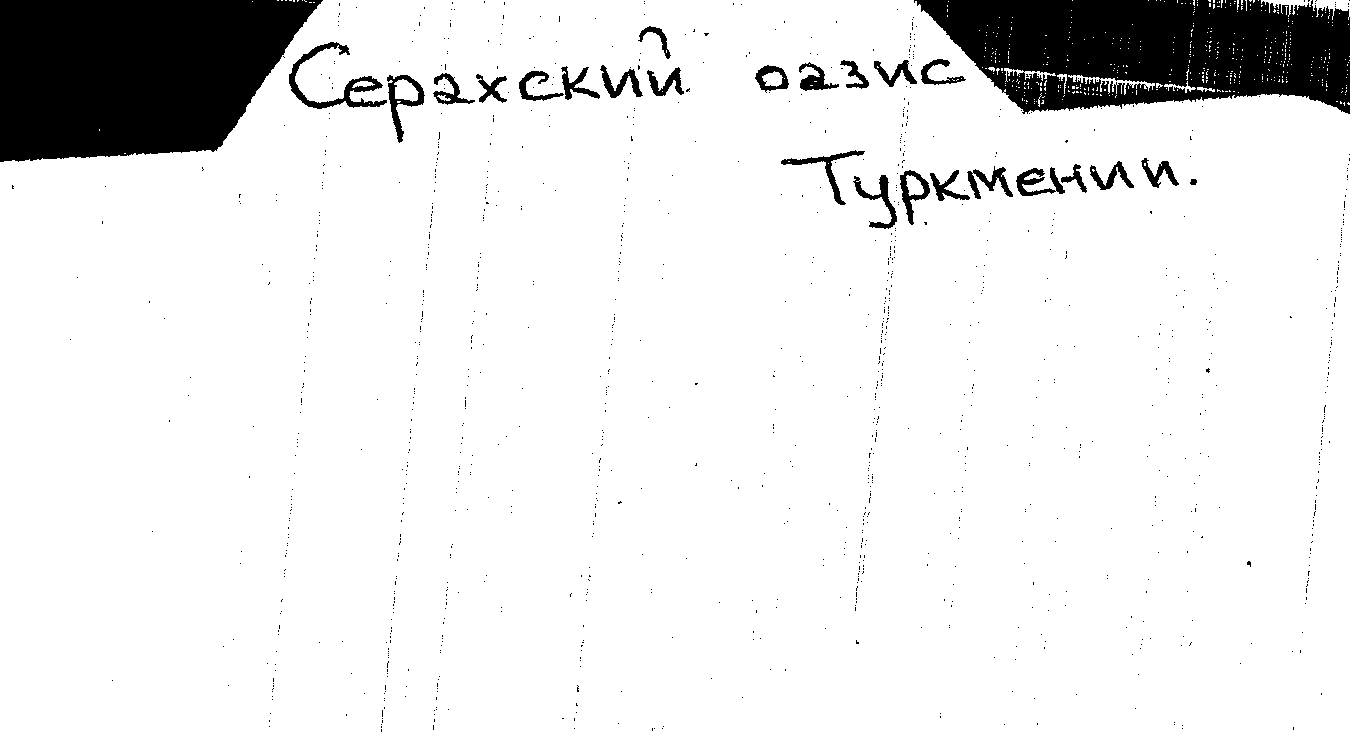 Серахский оазис
Туркмении.